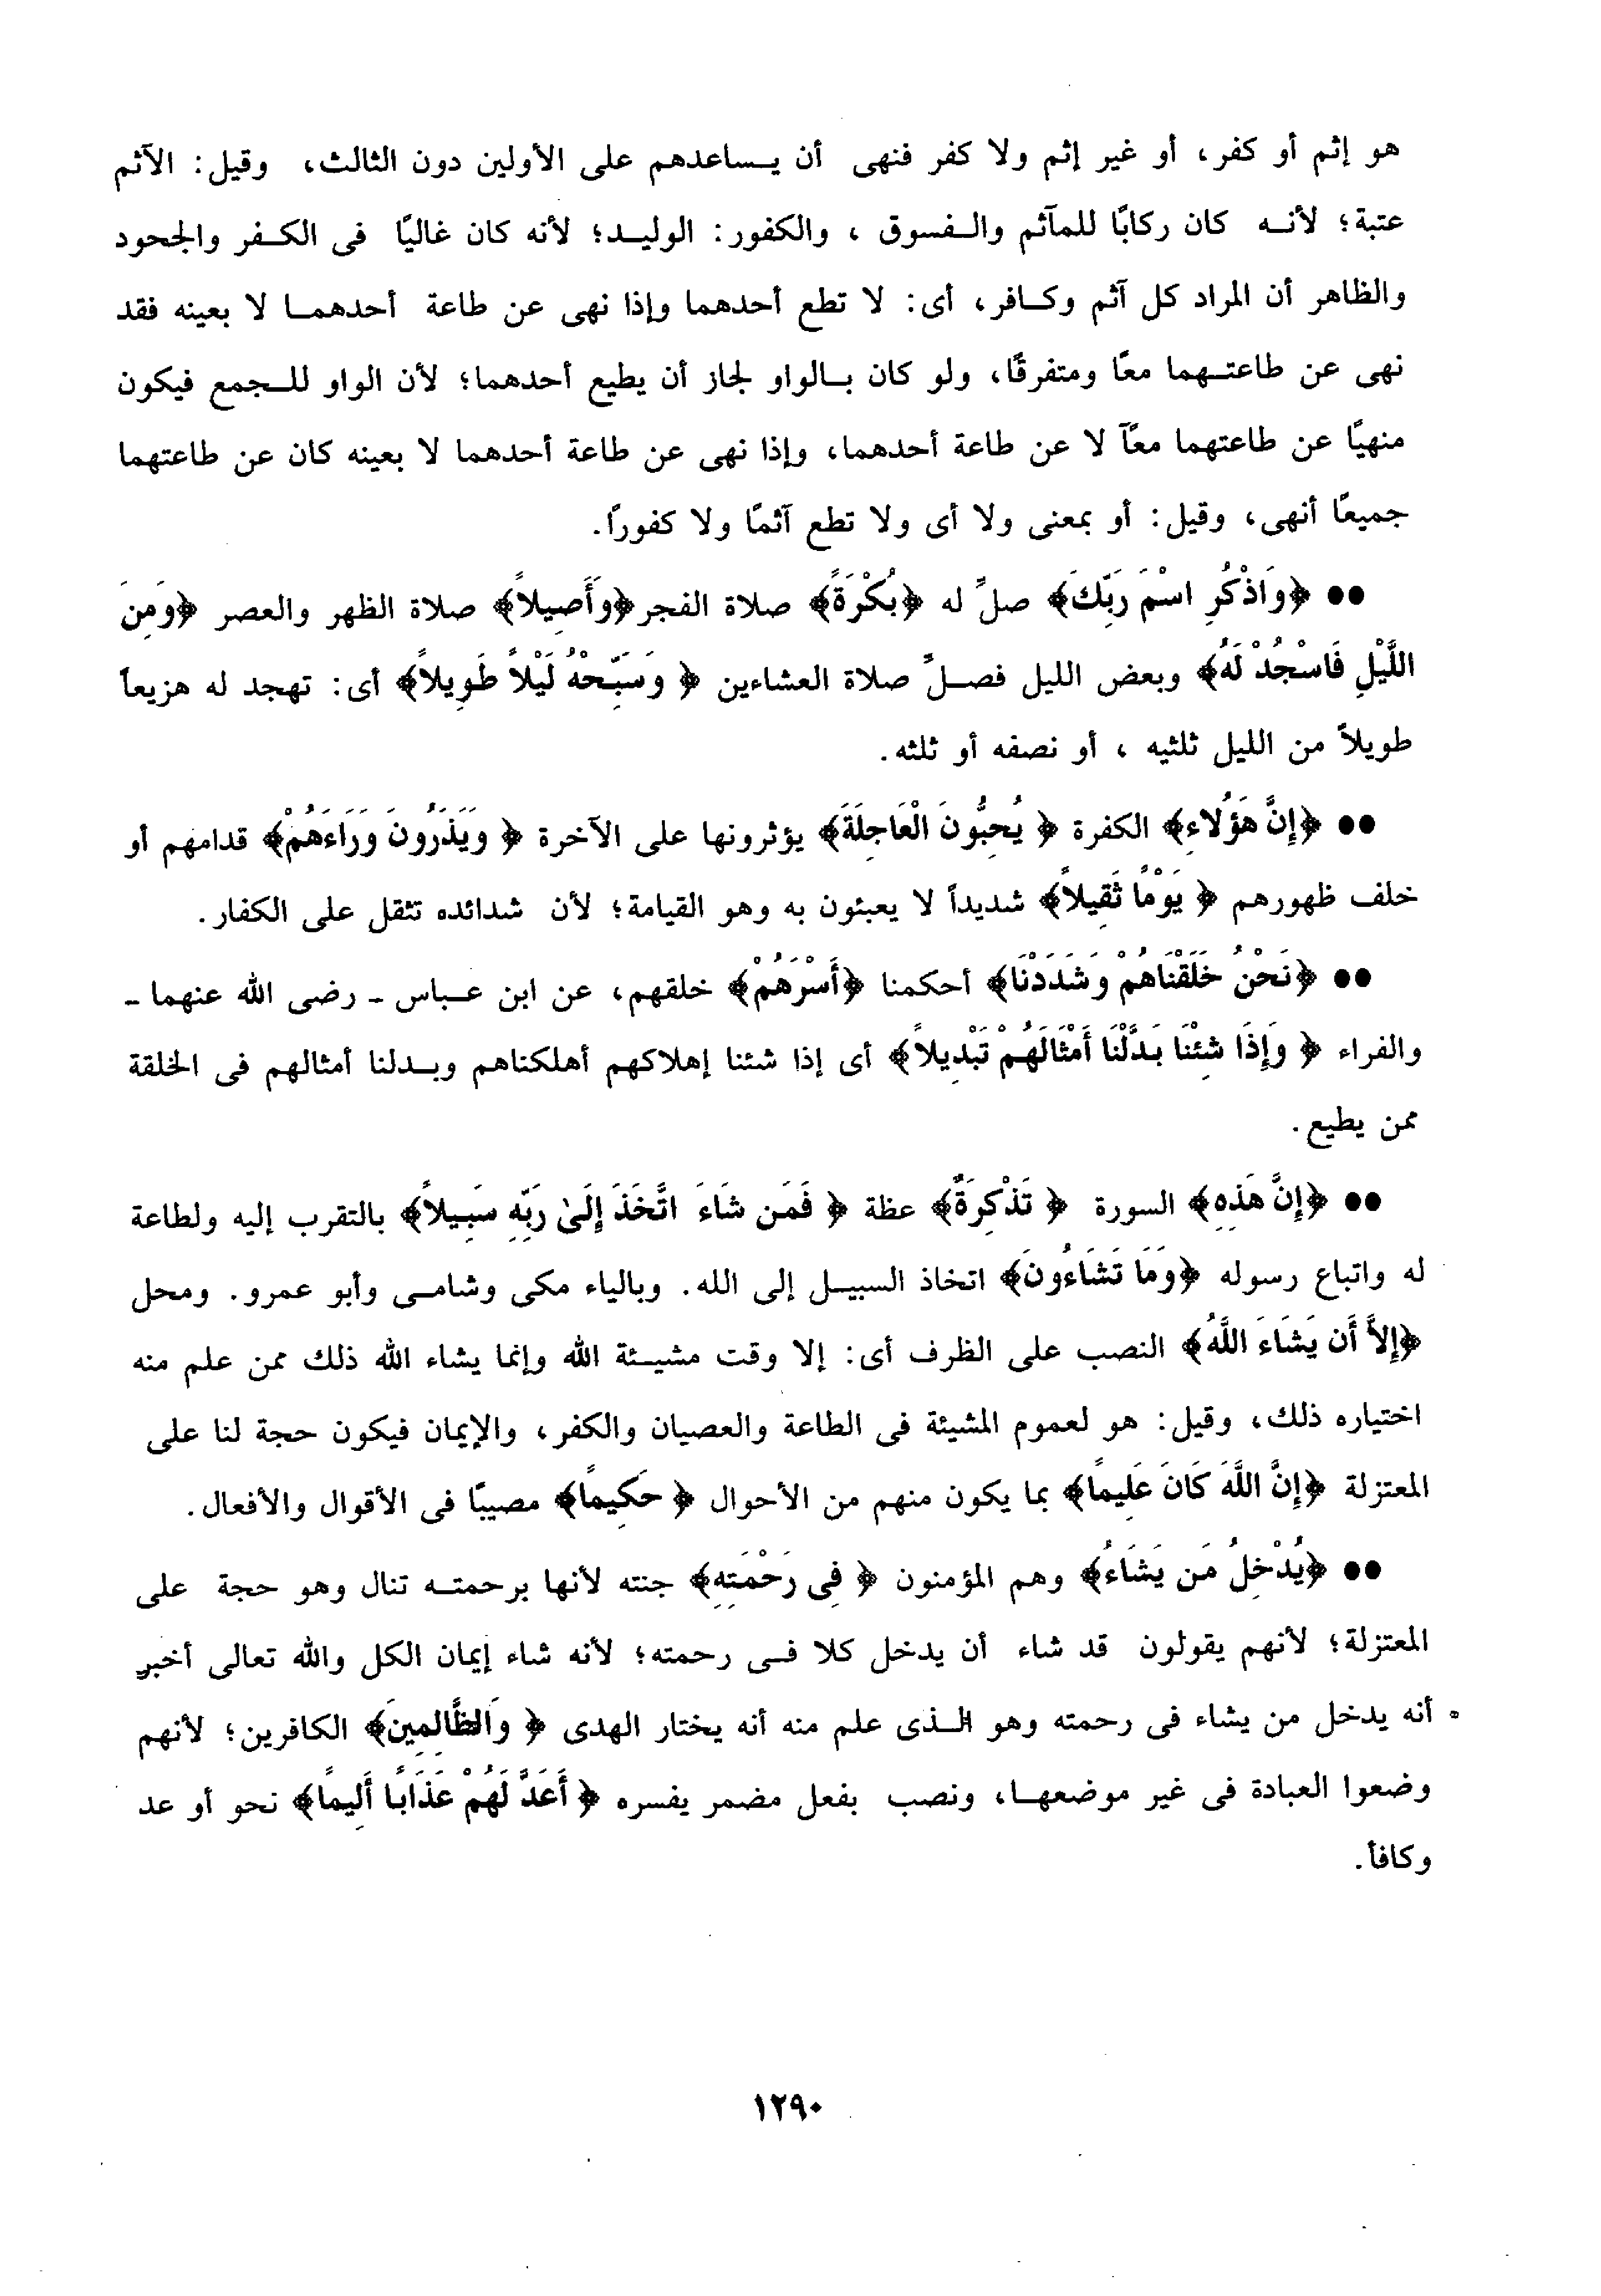 هو إثم أو كفر، أو غير إثم ولا كفر فنهى أن يساعدهم على الأولين دون الثالث، وقيل: الآثم
عتبة؛ لأنه كان ركابًا للمآثم والفسوق ، والكفور: الوليد؛ لأنه كان غاليًا فى الكفر والجحود
والظاهر أن المراد كل آثم وكافر، أى: لا تطع أحدهما وإذا نهى عن طاعة أحدهما لا بعينه فقد
نهى عن طاعتهما معًا ومتفرقًا، ولو كان بالواو لجاز أن يطيع أحدهما؛ لأن الواو للجمع فيكون
منهيًا عن طاعتهما معًا لا عن طاعة أحدهما، وإذا نهى عن طاعة أحدهما لا بعينه كان عن طاعتهما
جميعًا أنهى، وقيل: أو بمعنى ولا أى ولا تطع آثمًا ولا كفورًا.
●● ﴿وَاذْكُرِ اسْمَ رَبِّكَ﴾ صلِّ له ﴿بُكْرَةً﴾ صلاة الفجر ﴿وَأَصِيلاً﴾ صلاة الظهر والعصر ﴿وَمِنَ
اللَّيْلِ فَاسْجُدْ لَهُ﴾ وبعض الليل فصلِّ صلاة العشاءين ﴿ وَسَبِّحْهُ لَيْلاً طَوِيلاً﴾ أى: تهجد له هزيعاً
طويلاً من الليل ثلثيه ، أو نصفه أو ثلثه.
●● ﴿إِنَّ هَؤُلاءِ﴾ الكفرة ﴿ يُحِبُّونَ الْعَاجِلَةَ﴾ يؤثرونها على الآخرة ﴿ وَيَذَرُونَ وَرَاءَهُمْ﴾ قدامهم أو
خلف ظهورهم ﴿ يَوْمًا ثَقِيلاً﴾ شديداً لا يعبئون به وهو القيامة؛ لأن شدائده تثقل على الكفار.
●● ﴿نَحْنُ خَلَقْنَاهُمْ وَشَدَدْنَا﴾ أحكمنا ﴿أَسْرَهُمْ﴾ خلقهم، عن ابن عباس - رضى الله عنهما -
والفراء ﴿ وَإِذَا شِئْنَا بَدَّلْنَا أَمْثَالَهُمْ تَبْدِيلاً﴾ أى إذا شئنا إهلاكهم أهلكناهم وبدلنا أمثالهم فى الخلقة
ممن يطيع.
●● ﴿إِنَّ هَذِهِ﴾ السورة ﴿ تَذْكِرَةٌ﴾ عظة ﴿ فَمَن شَاءَ اتَّخَذَ إِلَىٰ رَبِّهِ سَبِيلاً﴾ بالتقرب إليه ولطاعة
له واتباع رسوله ﴿وَمَا تَشَاءُونَ﴾ اتخاذ السبيل إلى الله. وبالياء مكى وشامى وأبو عمرو. ومحل
﴿إِلاَّ أَن يَشَاءَ اللَّهُ﴾ النصب على الظرف أى: إلا وقت مشيئة الله وإنما يشاء الله ذلك ممن علم منه
اختياره ذلك، وقيل: هو لعموم المشيئة فى الطاعة والعصيان والكفر، والإيمان فيكون حجة لنا على
المعتزلة ﴿إِنَّ اللَّهَ كَانَ عَلِيمًا﴾ بما يكون منهم من الأحوال ﴿ حَكِيمًا﴾ مصيبًا فى الأقوال والأفعال.
●● ﴿يُدْخِلُ مَن يَشَاءُ﴾ وهم المؤمنون ﴿ فِى رَحْمَتِهِ﴾ جنته لأنها برحمته تنال وهو حجة على
المعتزلة؛ لأنهم يقولون قد شاء أن يدخل كلا فى رحمته؛ لأنه شاء إيمان الكل والله تعالى أخبر
أنه يدخل من يشاء فى رحمته وهو الذى علم منه أنه يختار الهدى ﴿ وَالظَّالِمِينَ﴾ الكافرين؛ لأنهم
وضعوا العبادة فى غير موضعها، ونصب بفعل مضمر يفسره ﴿ أَعَدَّ لَهُمْ عَذَابًا أَلِيمًا﴾ نحو أو عد
وكافأ.
١٢٩٠